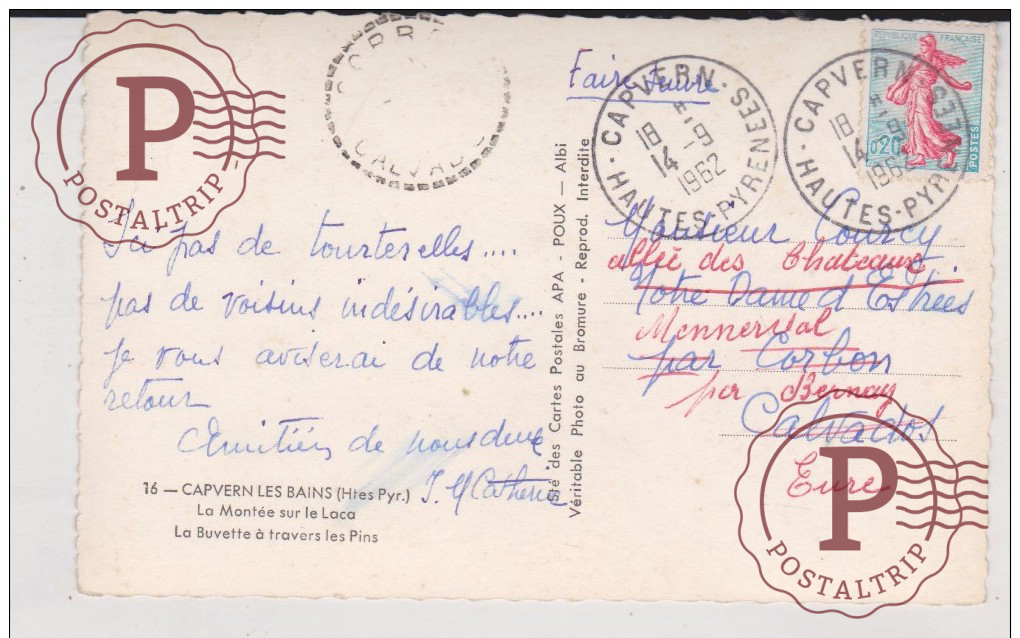 POSTALTRIP
CALVADOS
Faire suivre
CAPVERN
18 H
14 - 9
1962
HAUTES-PYRENEES
CAPVERN
18 H
14 - 9
1962
HAUTES-PYRENEES
REPUBLIQUE FRANÇAISE
0,20
POSTES
J'ai pas de tourterelles....
pas de voisins indésirables....
je vous aviserai de notre
retour
Amitiés de nous deux
16 — CAPVERN LES BAINS (Htes Pyr.)
La Montée sur le Laca
La Buvette à travers les Pins
Sté des Cartes Postales APA - POUX — Albi
Véritable Photo au Bromure - Reprod. Interdite
Monsieur Courcy
allée des Chateaux
Notre Dame d'Estrées
Mennerval
par Corbon
par Bernay
Calvados
Eure
POSTALTRIP